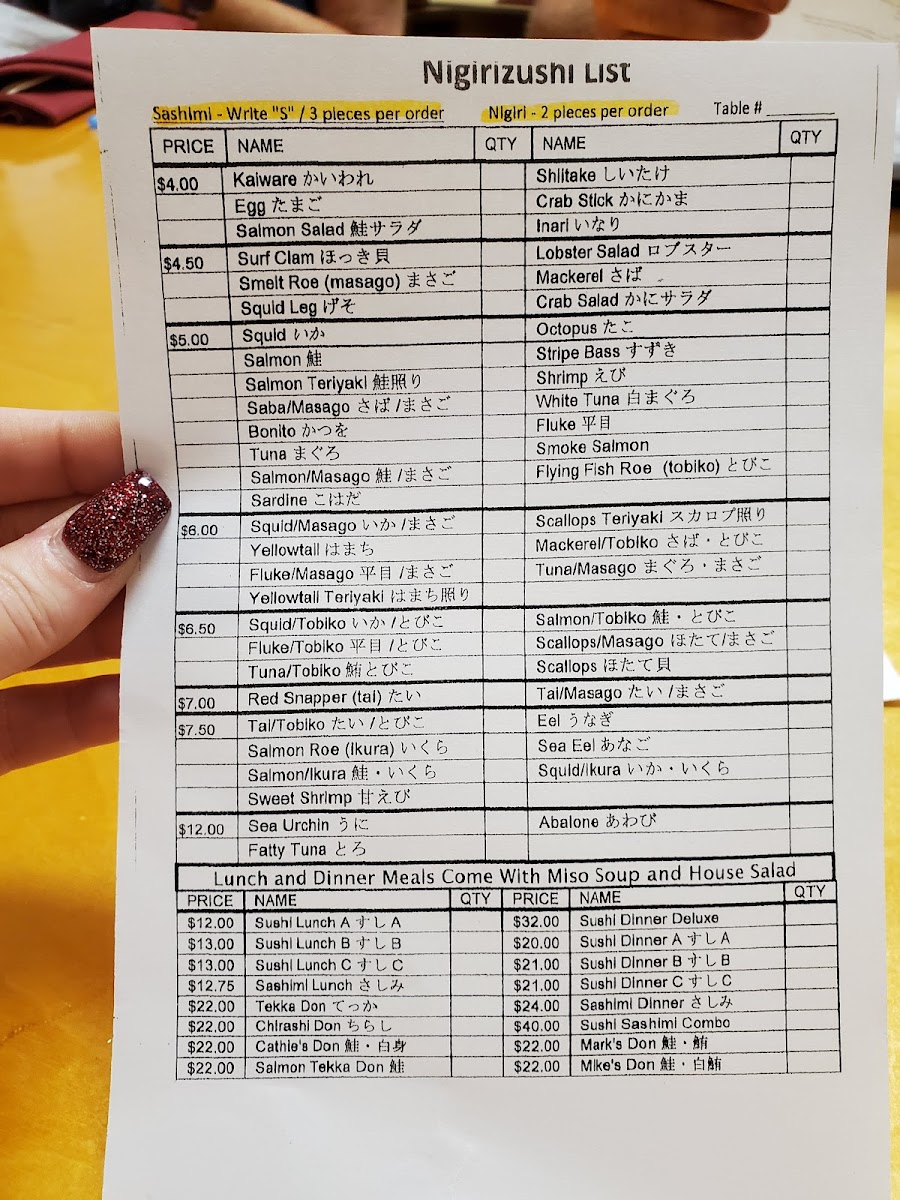 Nigirizushi List
Sashimi - Write "S" / 3 pieces per order Nigiri - 2 pieces per order Table # ______
PRICE NAME QTY NAME QTY
$4.00 Kaiware かいわれ Shiitake しいたけ
Egg たまご Crab Stick かにかま
Salmon Salad 鮭サラダ Inari いなり
$4.50 Surf Clam ほっき貝 Lobster Salad ロブスター
Smelt Roe (masago) まさご Mackerel さば
Squid Leg げそ Crab Salad かにサラダ
$5.00 Squid いか Octopus たこ
Salmon 鮭 Stripe Bass すずき
Salmon Teriyaki 鮭照り Shrimp えび
Saba/Masago さば /まさご White Tuna 白まぐろ
Bonito かつを Fluke 平目
Tuna まぐろ Smoke Salmon
Salmon/Masago 鮭 /まさご Flying Fish Roe (tobiko) とびこ
Sardine こはだ
$6.00 Squid/Masago いか /まさご Scallops Teriyaki スカロプ照り
Yellowtail はまち Mackerel/Tobiko さば・とびこ
Fluke/Masago 平目 /まさご Tuna/Masago まぐろ・まさご
Yellowtail Teriyaki はまち照り
$6.50 Squid/Tobiko いか /とびこ Salmon/Tobiko 鮭・とびこ
Fluke/Tobiko 平目 /とびこ Scallops/Masago ほたて/まさご
Tuna/Tobiko 鮪とびこ Scallops ほたて貝
$7.00 Red Snapper (tai) たい Tai/Masago たい /まさご
$7.50 Tai/Tobiko たい /とびこ Eel うなぎ
Salmon Roe (ikura) いくら Sea Eel あなご
Salmon/Ikura 鮭・いくら Squid/Ikura いか・いくら
Sweet Shrimp 甘えび
$12.00 Sea Urchin うに Abalone あわび
Fatty Tuna とろ
Lunch and Dinner Meals Come With Miso Soup and House Salad
PRICE NAME QTY PRICE NAME QTY
$12.00 Sushi Lunch A すし A $32.00 Sushi Dinner Deluxe
$13.00 Sushi Lunch B すし B $20.00 Sushi Dinner A すし A
$13.00 Sushi Lunch C すし C $21.00 Sushi Dinner B すし B
$12.75 Sashimi Lunch さしみ $21.00 Sushi Dinner C すし C
$22.00 Tekka Don てっか $24.00 Sashimi Dinner さしみ
$22.00 Chirashi Don ちらし $40.00 Sushi Sashimi Combo
$22.00 Cathie's Don 鮭・白身 $22.00 Mark's Don 鮭・鮪
$22.00 Salmon Tekka Don 鮭 $22.00 Mike's Don 鮭・白鮪